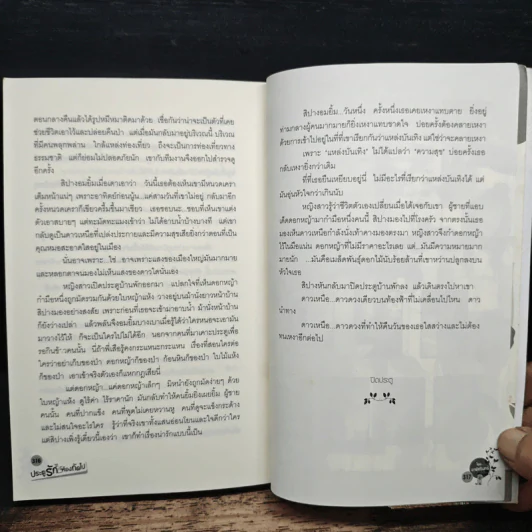 ตอนกลางคืนแล้วได้รูปหมีหมาติดมาด้วย เชื่อกันว่าน่าจะเป็นตัวที่เคย
ช่วยชีวิตเอาไว้และปล่อยคืนป่า แต่เมื่อมันกลับมาอยู่บริเวณนี้ บริเวณ
ที่มีคนพลุกพล่าน ใกล้แหล่งท่องเที่ยว ถึงจะเป็นการท่องเที่ยวทาง
ธรรมชาติ แต่ก็ย่อมไม่ปลอดภัยนัก เขากับทีมงานจึงออกไปสำรวจดู
อีกครั้ง
สิปางยอมยิ้มเมื่อเดาเอาว่า วันนี้เธอต้องเห็นเขามีหนวดเครา
เต็มหน้าแน่ๆ เพราะอาทิตย์ก่อนนู้น...แค่สามวันที่เขาไม่อยู่ กลับมาอีก
ครั้งหนวดเคราก็เขียวครึ้มขึ้นมาเชียว ...เธอชอบนะ...ชอบที่เห็นเขาแต่ง
ตัวเอาสบายๆ แต่บางครั้งก็จะมีคราบแมงเข้าว่า ไม่ได้อาบน้ำมาบ้างนาบี แต่เขา
กลับดูเป็นดาวเหนือที่เปล่งประกายและมีความสุขเสียยิ่งกว่าตอนที่เป็น
คุณหมอสะอาดใสอยู่ในเมือง
นั่นอาจเพราะ...ใช่...อาจเพราะแสงของเมืองใหญ่มันมากมาย
และหลอกตาจนมองไม่เห็นแสงของดาวไหนนั่นเอง
หญิงสาวเปิดประตูบ้านพักออกมา แปลกใจที่เห็นดอกหญ้า
กำมือหนึ่งถูกมัดรวมกันด้วยใบหญ้าแห้ง วางอยู่บนม้านั่งยาวหน้าบ้าน
สิปางมองอย่างสงสัย เพราะก่อนที่เธอจะเข้ามาอาบน้ำ ม้านั่งหน้าบ้าน
ก็ยังว่างเปล่า แล้วพลันจึงอมยิ้มบางเบาเมื่อรู้ได้ว่าใครหนอจะเอามัน
มาวางไว้ให้ ก็จะเป็นใครไปไม่ได้อีก นอกจากคนที่มาเคาะประตูเพื่อ
รอกินข้าวคนนั้น นี่ถ้าพี่เสือรู้คงกระแหนะกระแหน เรื่องที่สอนใครต่อ
ใครว่าอย่าเก็บของป่า ดอกหญ้าก็ของป่า ก้อนหินก็ของป่า ใบไม้แห้ง
ก็ของป่า เอาเข้าจริงตัวเองก็แหกกฎเสียนี่
แต่ดอกหญ้า...แค่ดอกหญ้าเล็กๆ มีหน้ายังถูกมัดง่ายๆ ด้วย
ใบหญ้าแห้ง ดูไร้ค่า ไร้ราคานัก มันกลับทำให้คนยิ้มยิ่งเผยยิ้ม ผู้ชาย
คนนั้น คนที่ปากแข็ง คนที่พูดไม่เคยหวานหู คนที่ดูจะแข็งกระด้าง
และไม่สนใจอะไรใคร รู้ว่าที่จริงเขาทั้งแสนอ่อนโยนและใจดีกว่าใคร
แต่สิปางเพิ่งรู้เดี๋ยวนี้เองว่า เขาก็ทำเรื่องน่ารักแบบนี้เป็น
316
ประตูรักที่...ห้องถัดไป
สิปางอมยิ้ม...วันหนึ่ง ครั้งหนึ่งเธอเคยเหงาแทบตาย ยิ่งอยู่
ท่ามกลางผู้คนมากมายก็ยิ่งเหงาแทบขาดใจ บ่อยครั้งต้องคลายเหงา
ด้วยการเข้าไปอยู่ในที่ที่เขาเรียกกันว่าแหล่งบันเทิง แต่ใช่ว่าจะคลายเหงา
เพราะ "แหล่งบันเทิง" ไม่ได้แปลว่า "ความสุข" บ่อยครั้งเธอก็
กลับเหงายิ่งกว่าเดิม
ที่ที่เธอยืนเหยียบอยู่นี่ ไม่มีอะไรที่เรียกว่าแหล่งบันเทิงได้ แต่
มันอุ่นหัวใจกว่าเกินนับ
หญิงสาวรู้ว่าชีวิตตัวเองเปลี่ยนเมื่อได้เจอกับเขา ผู้ชายที่แอบ
เด็ดดอกหญ้ามากำมือหนึ่งคนนี้ สิปางมองไปที่โรงครัว จากตรงนั้นเธอ
มองเห็นดาวเหนือกำลังนั่งเท้าคางมองตรงมา หญิงสาวจึงกำดอกหญ้า
ไว้ในมือแน่น ดอกหญ้าที่ไม่มีราคาอะไรเลย แต่...มันมีความหมายมาก
มายนัก ...มันคือเมล็ดพันธุ์ดอกไม้นับร้อยล้านที่เขาหว่านปลูกลงบน
หัวใจเธอ
สิปางหันกลับมาปิดประตูบ้านพักลง แล้วเดินตรงไปหาเขา
ดาวเหนือ...ดาวดวงเดียวบนท้องฟ้าที่ไม่เคลื่อนไปไหน ดาว
นำทาง
ดาวเหนือ...ดาวดวงที่ทำให้คืนวันของเธอใสสว่างและไม่ต้อง
ทนเหงาอีกต่อไป
ปิดประตู
317